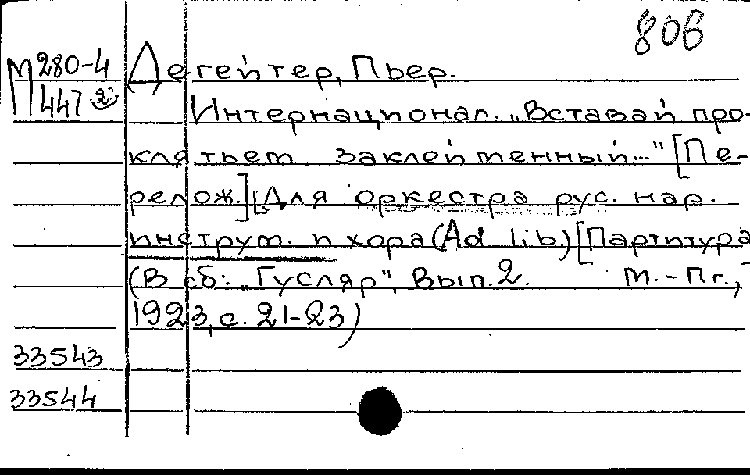 806
М 280-4
447
Дегейтер, Пьер.
Интернационал. „Вставай про-
клятьем заклейменный..." [Пе-
релож.] [Для оркестра рус. нар.
инструм. и хора (Ad lib) [Партитура
(В сб: „Гусляр", Вып. 2. М.-Пг.,
1923, с. 21-23)
33543
33544